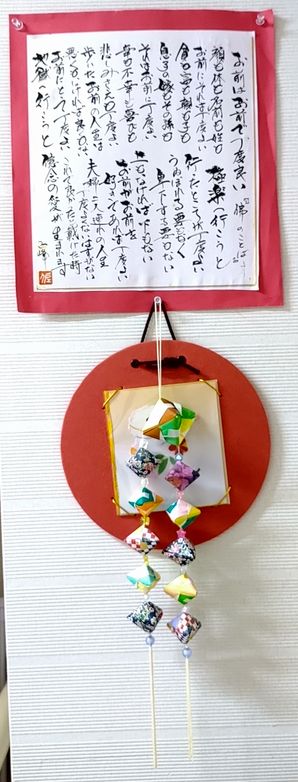 お前はお前で丁度良い 『佛のことば』
顔も体も名前も姓も
お前にそれは丁度よい
貧も富も親も子も
息子の嫁もその孫も
それはお前に丁度よい
幸も不幸も喜びも
悲しみさえも丁度よい
歩いたお前の人生は
悪くもなければ良くもない
お前にとって丁度よい
地獄へ行こうと
極楽へ行こうと
行ったところが丁度よい
うぬぼれる要もなく
卑下する要もない
上もなければ下もない
お前がお前
夫婦 二人連れの人生
丁度よくないはずがない
これで良かったと戴けた時
憶念の 生まれます